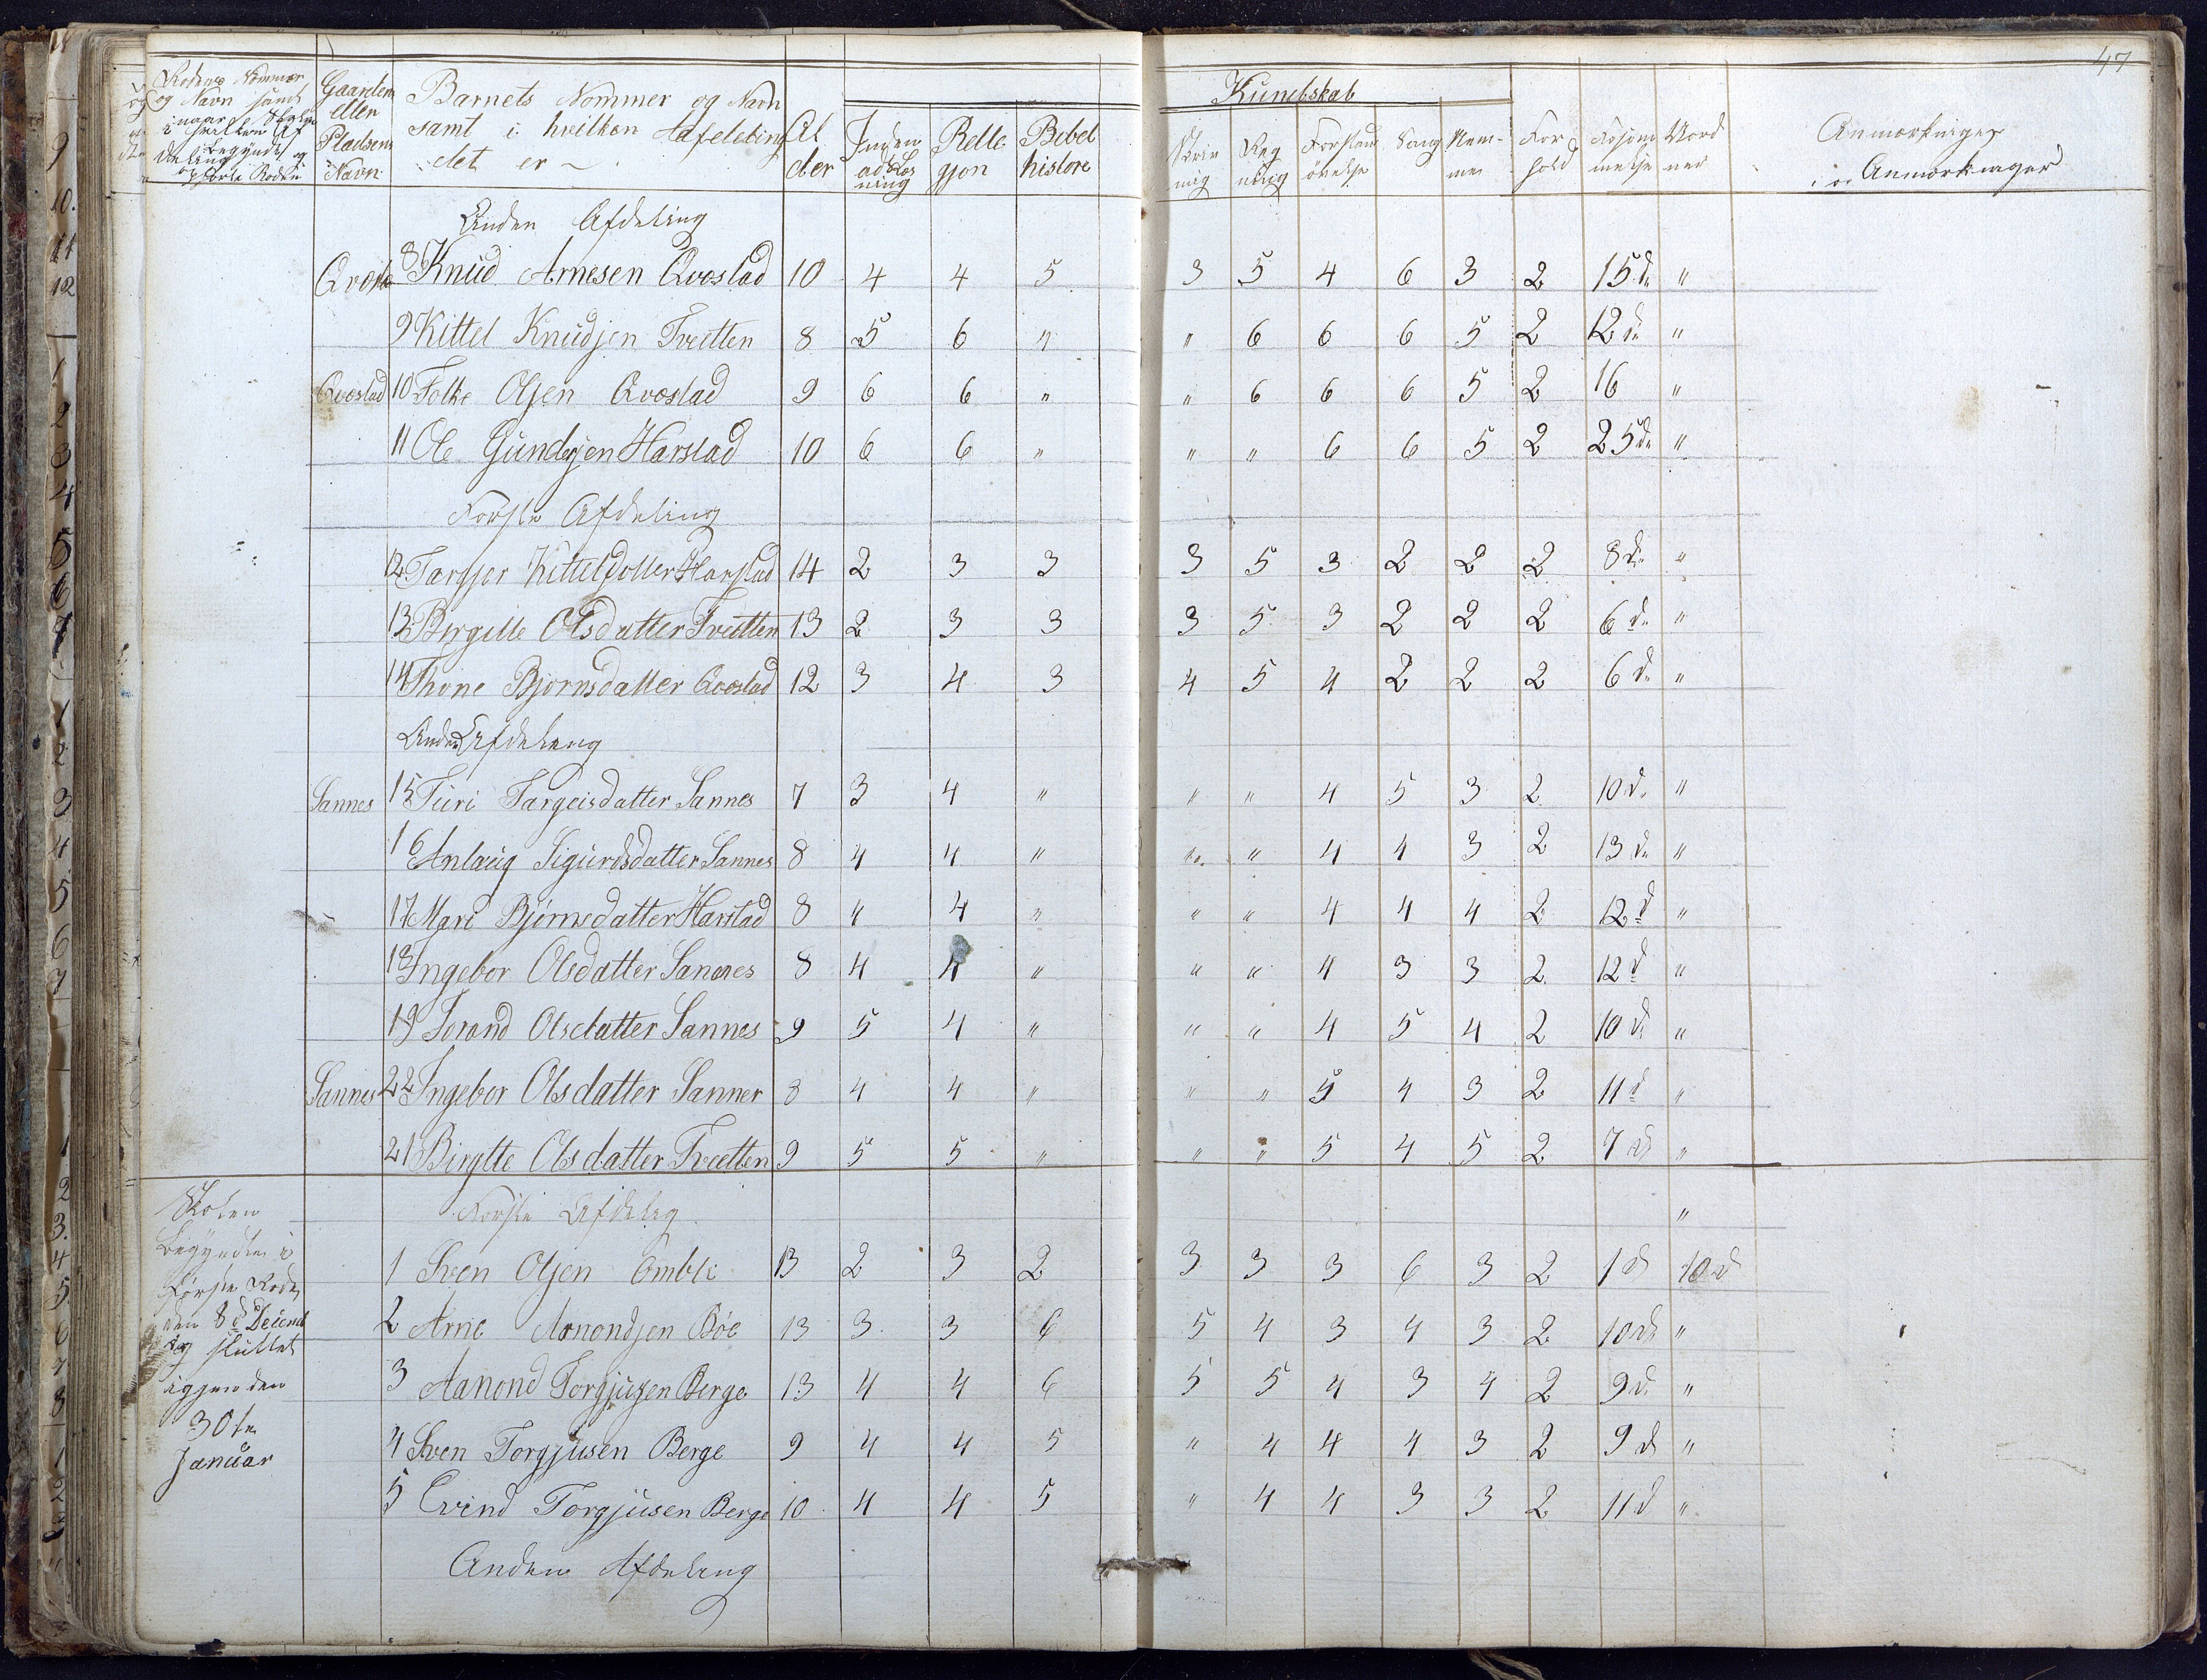 47
Rodens Nommer og Navn samt naar Skolen i hvilken Af deling begyndes og
Gaardens ellen Pladsens Navn
Barnets Nommer og Navn samt i hvilken Afeleling det er
Al der
Rele gjon
Bibel histore
Kundskab
Skriv ning
Reg ning
Sang
Nem me
For hold
Anmærkninger
Anmærkninger
Anden Afdeling
8 Knud Arnesen Qvæstad 10 4 4 5 3 5 4 6 3 2 15 d. "
9 Kittel Knudsen Tveitten 8 5 6 " " 6 6 6 5 2 12 d. "
Qvæstad 10 Folke Olsen Qvæstad 9 6 6 " " 6 6 6 5 2 16 "
11 Ole Gundersen Harstad 10 6 6 " " " 6 6 5 2 25 d. "
Forste Afdeling
12 Targjer Kittelsdotter Harstad 14 2 3 3 3 5 3 2 2 2 8 d. "
13 Birgitte Olsdatter Tveitten 13 2 3 3 3 5 3 2 2 2 6 d. "
14 Thone Bjornsdatter Qvæstad 12 3 4 3 4 5 4 2 2 2 6 d. "
Anden Afdeling
Sannes 15 Turi Targeisdatter Sannes 7 3 4 " " " 4 5 3 2 10 d. "
16 Anlaug Sigurdsdatter Sannes 8 4 4 " " " 4 4 3 2 13 d. "
17 Mari Bjørnsdatter Harstad 8 " 4 " " " 4 4 4 2 12 d "
18 Ingebor Olsdatter Sannes 8 4 4 " " " 4 3 3 2 12 d "
19 Torand Olsdatter Sannes 9 5 4 " " " 4 5 4 2 10 d. "
Sannes 22 Ingebor Olsdatter Sanner 8 4 4 " " " 5 4 3 2 11 d "
21 Birgtte Olsdatter Tveitten 9 5 5 " " " 5 4 5 2 7 d "
Skolen
Første Afdeling "
begyndte i
1 Sven Olsen Ombli 13 2 3 2 3 3 3 6 3 2 1 d 10 d
første Rode
den 8d Decemb
2 Arne Amondsen Bøe 13 3 3 6 5 4 3 4 3 2 10 d "
og sluttet
3 Aanond Torgjusen Berge 13 4 4 6 5 5 4 3 4 2 9 d. "
iggjen den
30te
4 Sven Torgjusen Berge 9 4 4 5 " 4 4 4 3 2 9 d "
Januar
5 Evind Torgjusen Berge 10 4 4 5 " 4 4 3 3 2 11 d "
Anden Afdeling